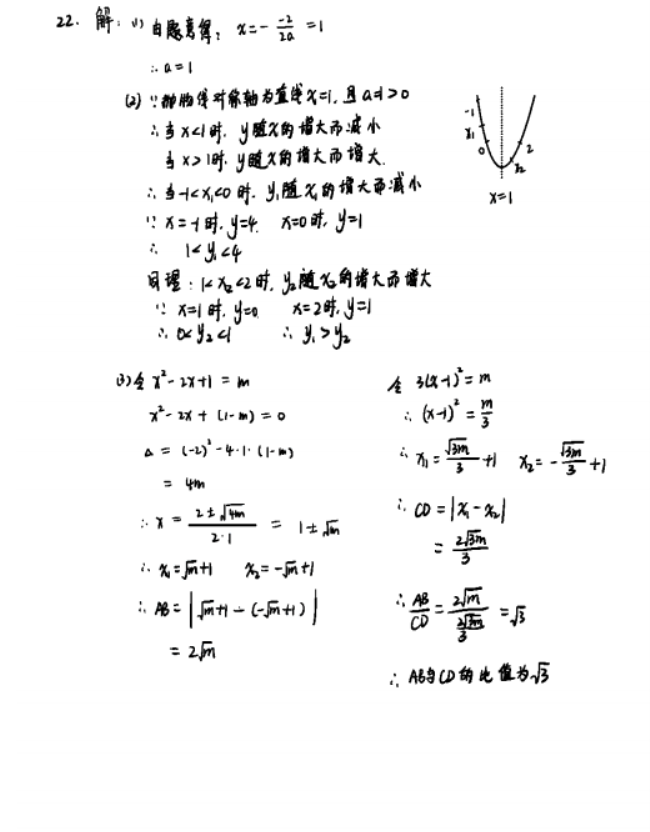 22. 解: (1) 由题意得: x=-\frac{-2}{2a}=1
∴ a=1
(2) ∵抛物线对称轴为直线x=1, 且a=1>0
∴当x<1时, y随x的增大而减小
当x>1时, y随x的增大而增大.
∴当-1<x₁<0时, y₁随x₁的增大而减小
∵ x=-1时, y=4. x=0时, y=1
∴ 1<y₁<4
同理: 1<x₂<2时, y₂随x₂的增大而增大
∵ x=1时, y=0. x=2时, y=1
∴ 0<y₂<1 ∴ y₁>y₂
-1
x₁
0
2
x₂
x=1
(3) 令 x²-2x+1=m
x²-2x+(1-m)=0
Δ=(-2)²-4·1·(1-m)
=4m
∴ x=\frac{2±√4m}{2·1}=1±√m
∴ x₁=√m+1 x₂=-√m+1
∴ AB=|√m+1-(-√m+1)|
=2√m
令 3(x-1)²=m
∴ (x-1)²=\frac{m}{3}
∴ x₁=\frac{√3m}{3}+1 x₂=-\frac{√3m}{3}+1
∴ CD=|x₁-x₂|
=\frac{2√3m}{3}
∴ \frac{AB}{CD}=\frac{2√m}{\frac{2√3m}{3}}=√3
∴ AB与CD的比值为√3